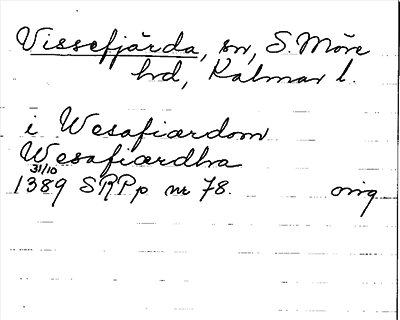 Vissefjärda, sn, S. Möre
hd, Kalmar l.
i Wesafiærdom
Wesafiærdha
31/10
1389 SRPp nr 78. orig